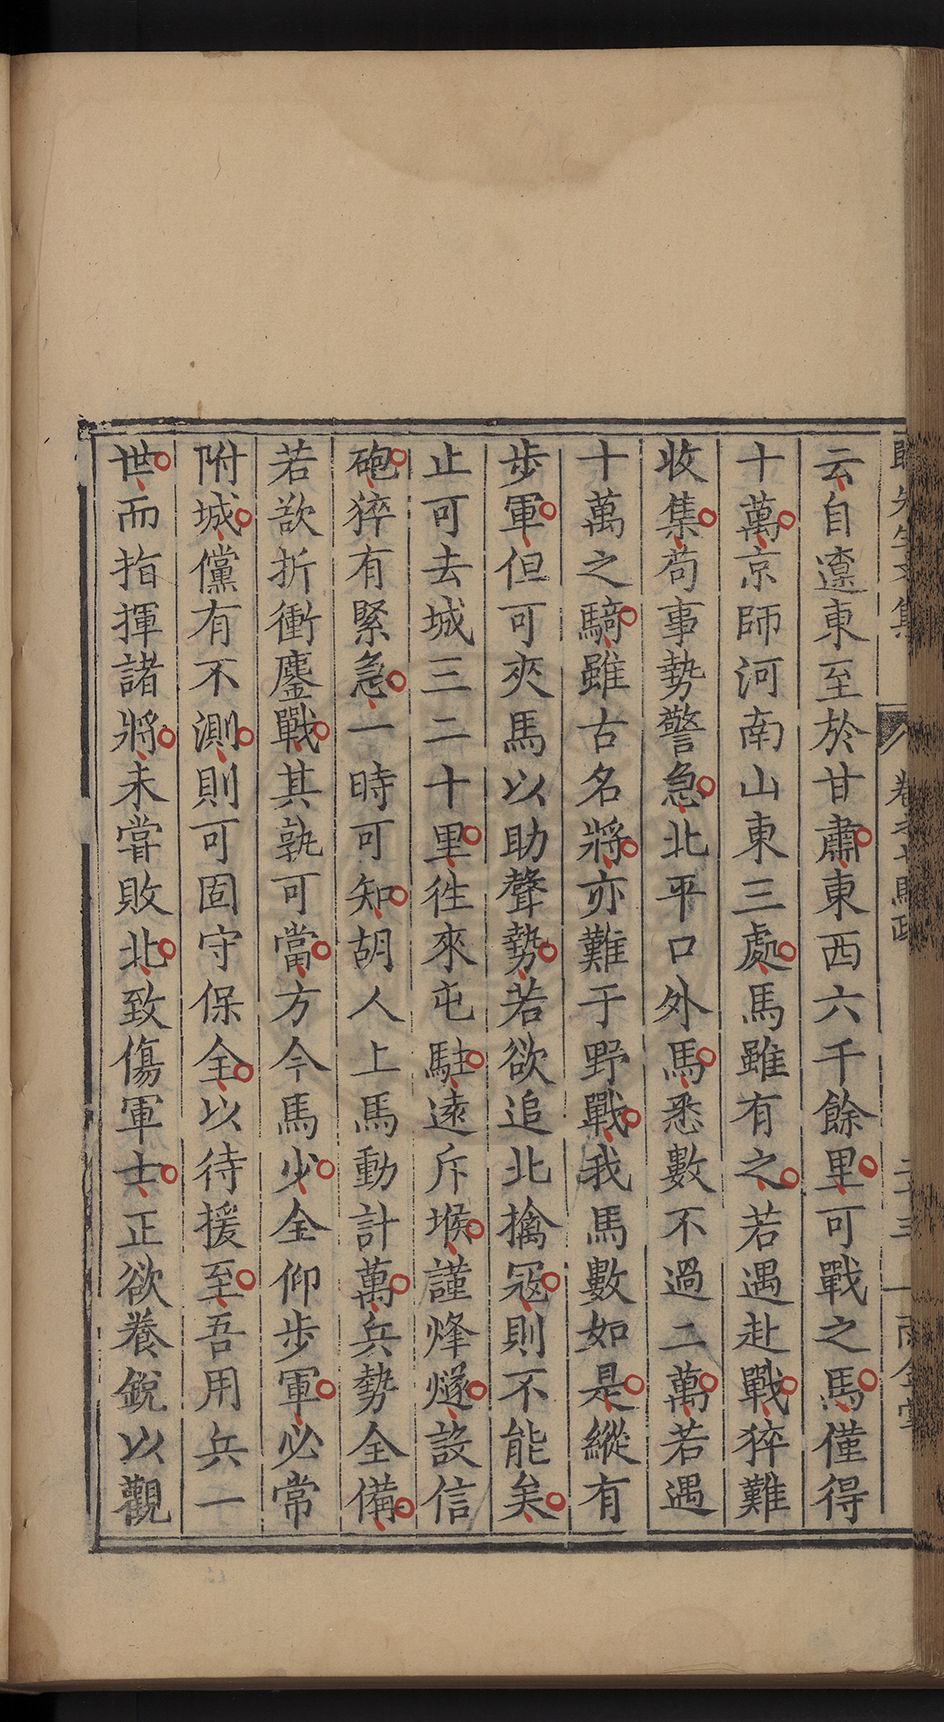 云自遼東至於甘肅東西六千餘里可戰之馬僅得
十萬京師河南山東三處馬雖有之若遇赴戰猝難
收集苟事勢警急北平口外馬悉數不過二萬若遇
十萬之騎雖古名將亦難于野戰我馬數如是縱有
步軍但可夾馬以助聲勢若欲追北擒冦則不能矣
止可去城三二十里徃來屯駐遠斥堠謹烽燧設信
砲猝有緊急一時可知胡人上馬動計萬兵勢全備
若欲折衝鏖戰其孰可當方今馬少全仰步軍必常
附城儻有不測則可固守保全以待援至吾用兵一
世而指揮諸將未甞敗北致傷軍士正欲養銳以觀